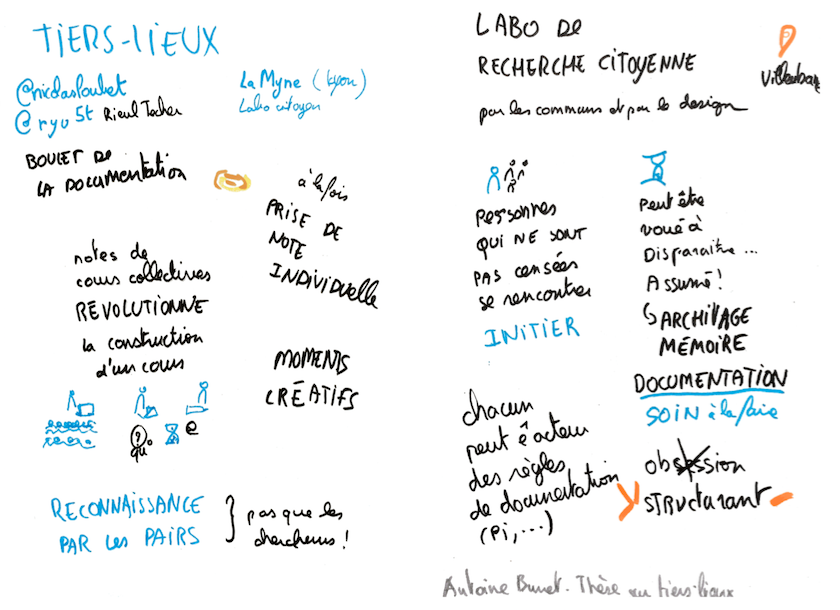 TIERS-LIEUX
@nicolasloubet
@ryu5t Rieul Techer
La Myne (Lyon)
Labo citoyen
BOULET DE
LA DOCUMENTATION
à la fois
PRISE DE
NOTE
INDIVIDUELLE
notes de
cours collectives
RÉVOLUTIONNE
la construction
d'un cours
MOMENTS
CRÉATIFS
?
qu°
@
RECONNAISSANCE
PAR LES PAIRS
pas que les
chercheurs !
LABO DE
RECHERCHE CITOYENNE
par les communs et par le design
Villeurbanne
Personnes
QUI NE SONT
PAS censées
se rencontrer
INITIER
Peut être
voué à
Disparaître ...
Assumé !
ARCHIVAGE
MÉMOIRE
DOCUMENTATION
SOIN à la faire
obsession
STRUCTURANT
chacun
peut ê acteur
des règles
de documentation
(Pi, ...)
Antoine Burret. Thèse sur tiers-lieux